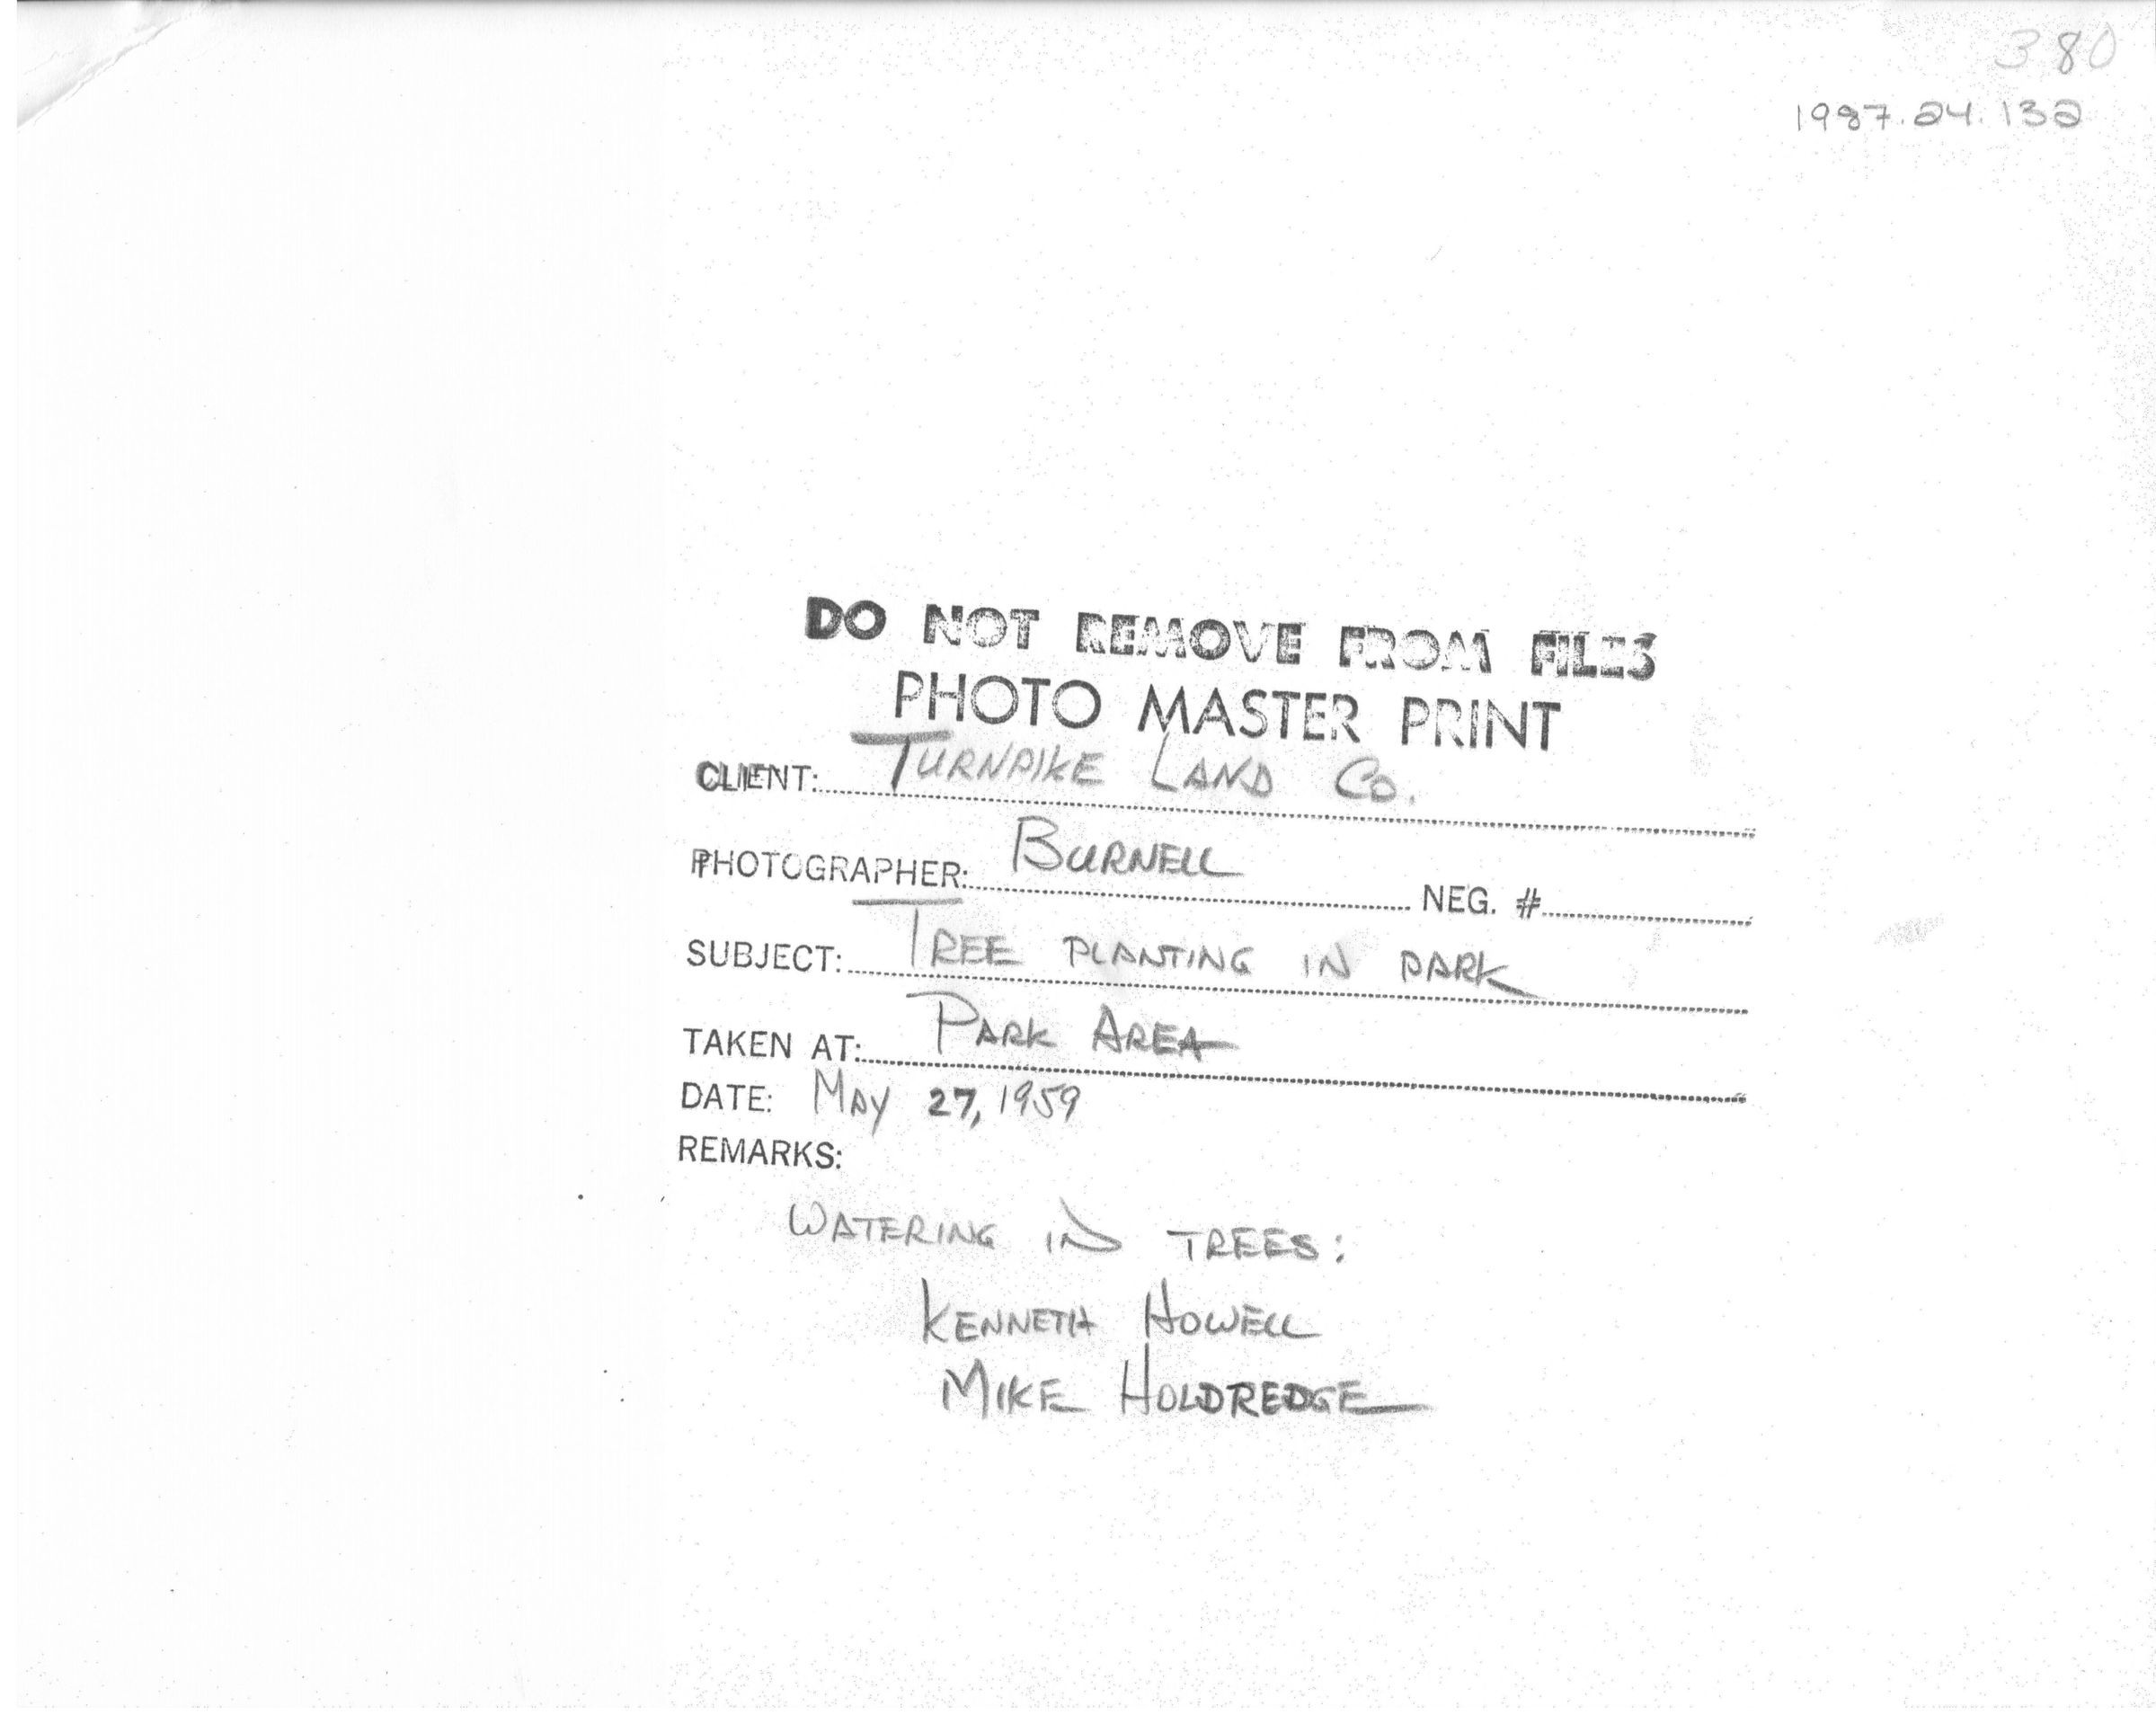 380
1987.24.132
DO NOT REMOVE FROM FILES
PHOTO MASTER PRINT
CLIENT: TURNPIKE LAND CO.
PHOTOGRAPHER: BURNELL NEG. #
SUBJECT: TREE PLANTING IN PARK
TAKEN AT: PARK AREA
DATE: MAY 27, 1959
REMARKS:
WATERING IN TREES:
KENNETH HOWELL
MIKE HOLDREDGE